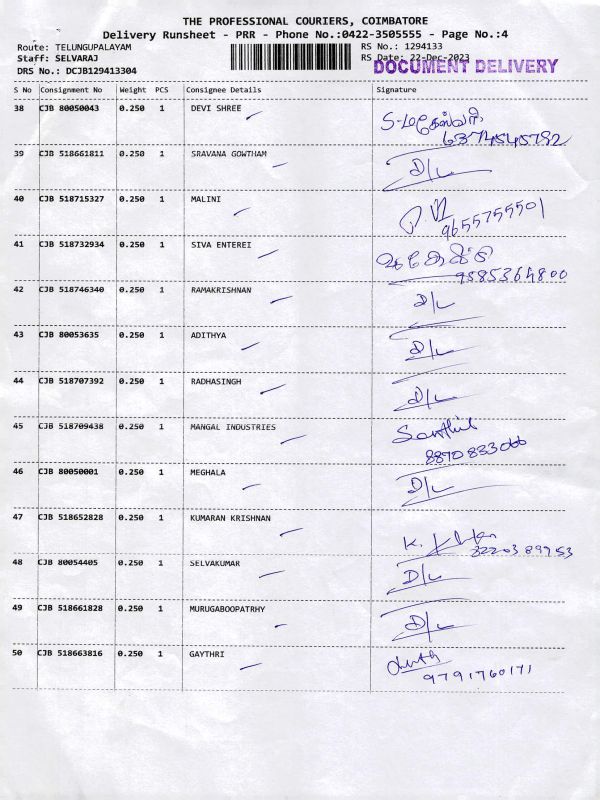 THE PROFESSIONAL COURIERS, COIMBATORE
Delivery Runsheet - PRR - Phone No.:0422-3505555 - Page No.:4
Route: TELUNGUPALAYAM RS No.: 1294133
Staff: SELVARAJ RS Date: 22-Dec-2023
DRS No.: DCJB129413304 DOCUMENT DELIVERY
S No Consignment No Weight PCS Consignee Details Signature
38 CJB 80050043 0.250 1 DEVI SHREE
6374545792
39 CJB 518661811 0.250 1 SRAVANA GOWTHAM D/L
40 CJB 518715327 0.250 1 MALINI
9655755501
41 CJB 518732934 0.250 1 SIVA ENTEREI
9385364800
42 CJB 518746340 0.250 1 RAMAKRISHNAN D/L
43 CJB 80053635 0.250 1 ADITHYA D/L
44 CJB 518707392 0.250 1 RADHASINGH D/L
45 CJB 518709438 0.250 1 MANGAL INDUSTRIES
8870833066
46 CJB 80050001 0.250 1 MEGHALA D/L
47 CJB 518652828 0.250 1 KUMARAN KRISHNAN K.
48 CJB 80054405 0.250 1 SELVAKUMAR D/L
49 CJB 518661828 0.250 1 MURUGABOOPATRHY D/L
50 CJB 518663816 0.250 1 GAYTHRI
9791760171